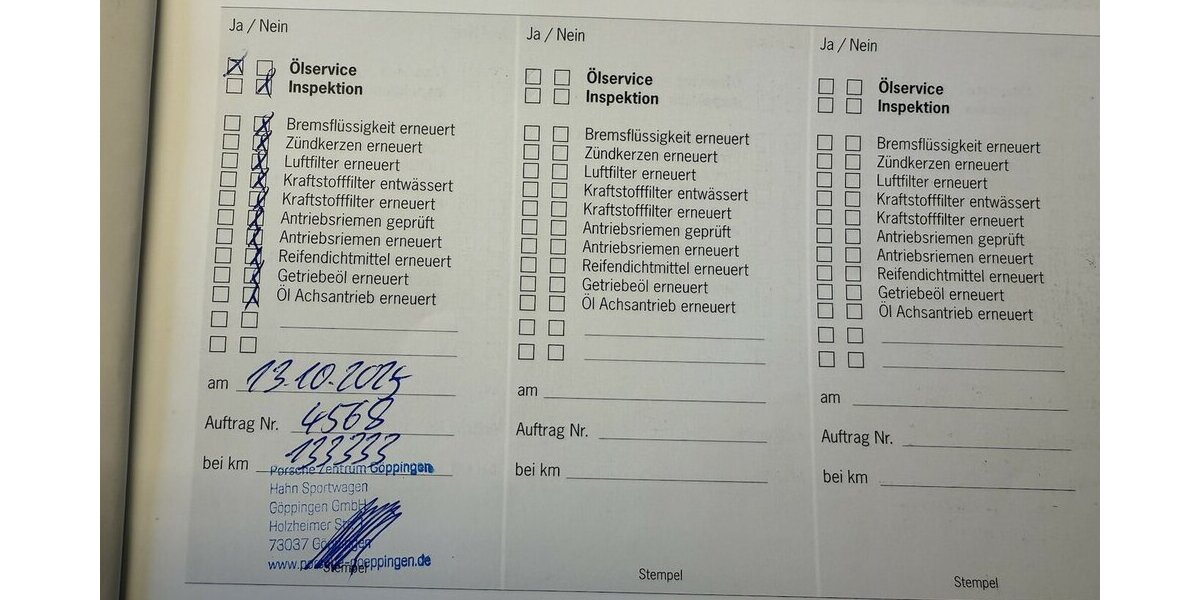 Ja / Nein
Ölservice
Inspektion
Bremsflüssigkeit erneuert
Zündkerzen erneuert
Luftfilter erneuert
Kraftstofffilter entwässert
Kraftstofffilter erneuert
Antriebsriemen geprüft
Antriebsriemen erneuert
Reifendichtmittel erneuert
Getriebeöl erneuert
Öl Achsantrieb erneuert
am 13.10.2025
Auftrag Nr. 4568
bei km 133333
Porsche Zentrum Göppingen
Hahn Sportwagen
Göppingen GmbH
Holzheimer
73037
Stempel
Ja / Nein
Ölservice
Inspektion
Bremsflüssigkeit erneuert
Zündkerzen erneuert
Luftfilter erneuert
Kraftstofffilter entwässert
Kraftstofffilter erneuert
Antriebsriemen geprüft
Antriebsriemen erneuert
Reifendichtmittel erneuert
Getriebeöl erneuert
Öl Achsantrieb erneuert
am
Auftrag Nr.
bei km
Stempel
Ja / Nein
Ölservice
Inspektion
Bremsflüssigkeit erneuert
Zündkerzen erneuert
Luftfilter erneuert
Kraftstofffilter entwässert
Kraftstofffilter erneuert
Antriebsriemen geprüft
Antriebsriemen erneuert
Reifendichtmittel erneuert
Getriebeöl erneuert
Öl Achsantrieb erneuert
am
Auftrag Nr.
bei km
Stempel